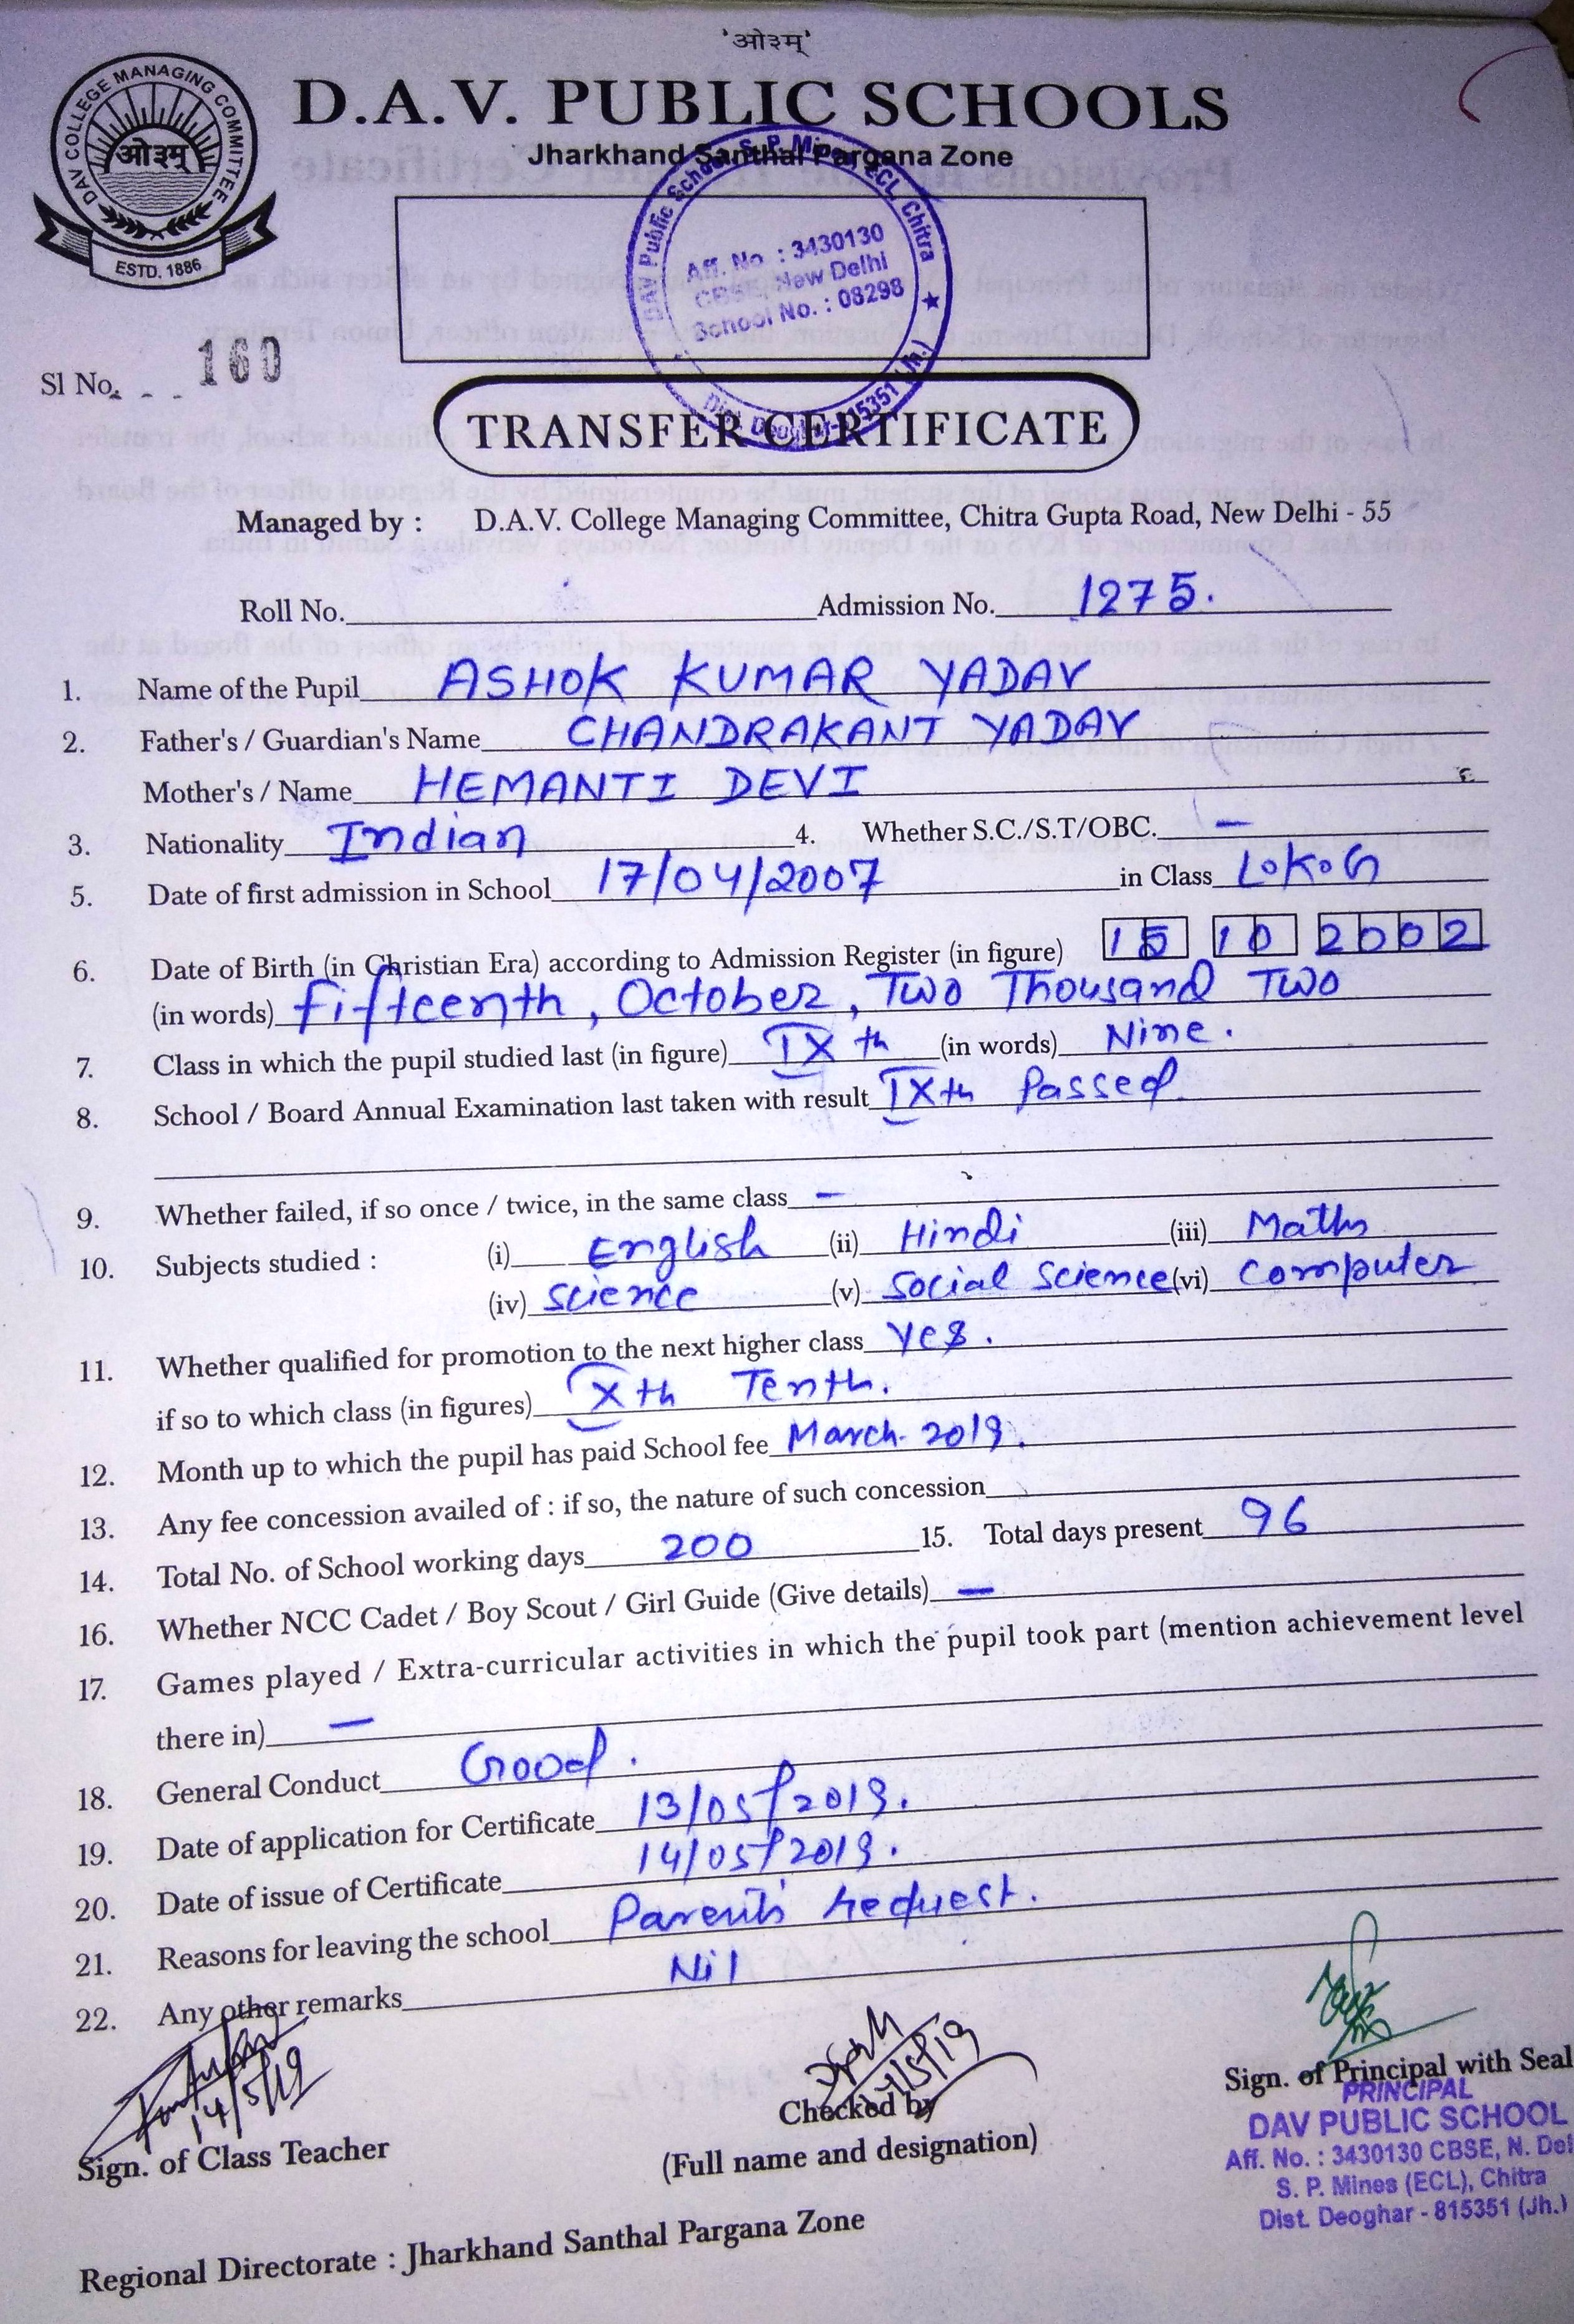 'ओ३म्'
DAV COLLEGE MANAGING COMMITTEE
ओ३म्
ESTD. 1886
D.A.V. PUBLIC SCHOOLS
Jharkhand Santhal Pargana Zone
DAV Public School, S. P. Mines, ECL, Chitra
Aff. No. : 3430130
CBSE, New Delhi
School No. : 08298
Dist. Deoghar-815351 (Jh.)
Sl No. 160
TRANSFER CERTIFICATE
Managed by : D.A.V. College Managing Committee, Chitra Gupta Road, New Delhi - 55
Roll No. Admission No. 1275.
1. Name of the Pupil ASHOK KUMAR YADAV
2. Father's / Guardian's Name CHANDRAKANT YADAV
Mother's / Name HEMANTI DEVI
3. Nationality Indian 4. Whether S.C./S.T/OBC. —
5. Date of first admission in School 17/04/2007 in Class L.K.G
6. Date of Birth (in Christian Era) according to Admission Register (in figure) 15 10 2002
(in words) Fifteenth, October, Two Thousand Two
7. Class in which the pupil studied last (in figure) IXth (in words) Nine.
8. School / Board Annual Examination last taken with result IXth Passed
9. Whether failed, if so once / twice, in the same class —
10. Subjects studied : (i) English (ii) Hindi (iii) Maths
(iv) Science (v) Social Science (vi) Computer
11. Whether qualified for promotion to the next higher class Yes.
if so to which class (in figures) Xth Tenth.
12. Month up to which the pupil has paid School fee March-2019.
13. Any fee concession availed of : if so, the nature of such concession
14. Total No. of School working days 200 15. Total days present 96
16. Whether NCC Cadet / Boy Scout / Girl Guide (Give details) —
17. Games played / Extra-curricular activities in which the pupil took part (mention achievement level
there in) —
18. General Conduct Good.
19. Date of application for Certificate 13/05/2019.
20. Date of issue of Certificate 14/05/2019.
21. Reasons for leaving the school Parents request.
22. Any other remarks Nil
14/5/19
14/5/19
Sign. of Class Teacher
Checked by
(Full name and designation)
Sign. of Principal with Seal
PRINCIPAL
DAV PUBLIC SCHOOL
Aff. No. : 3430130 CBSE, N. Del
S. P. Mines (ECL), Chitra
Dist. Deoghar - 815351 (Jh.)
Regional Directorate : Jharkhand Santhal Pargana Zone